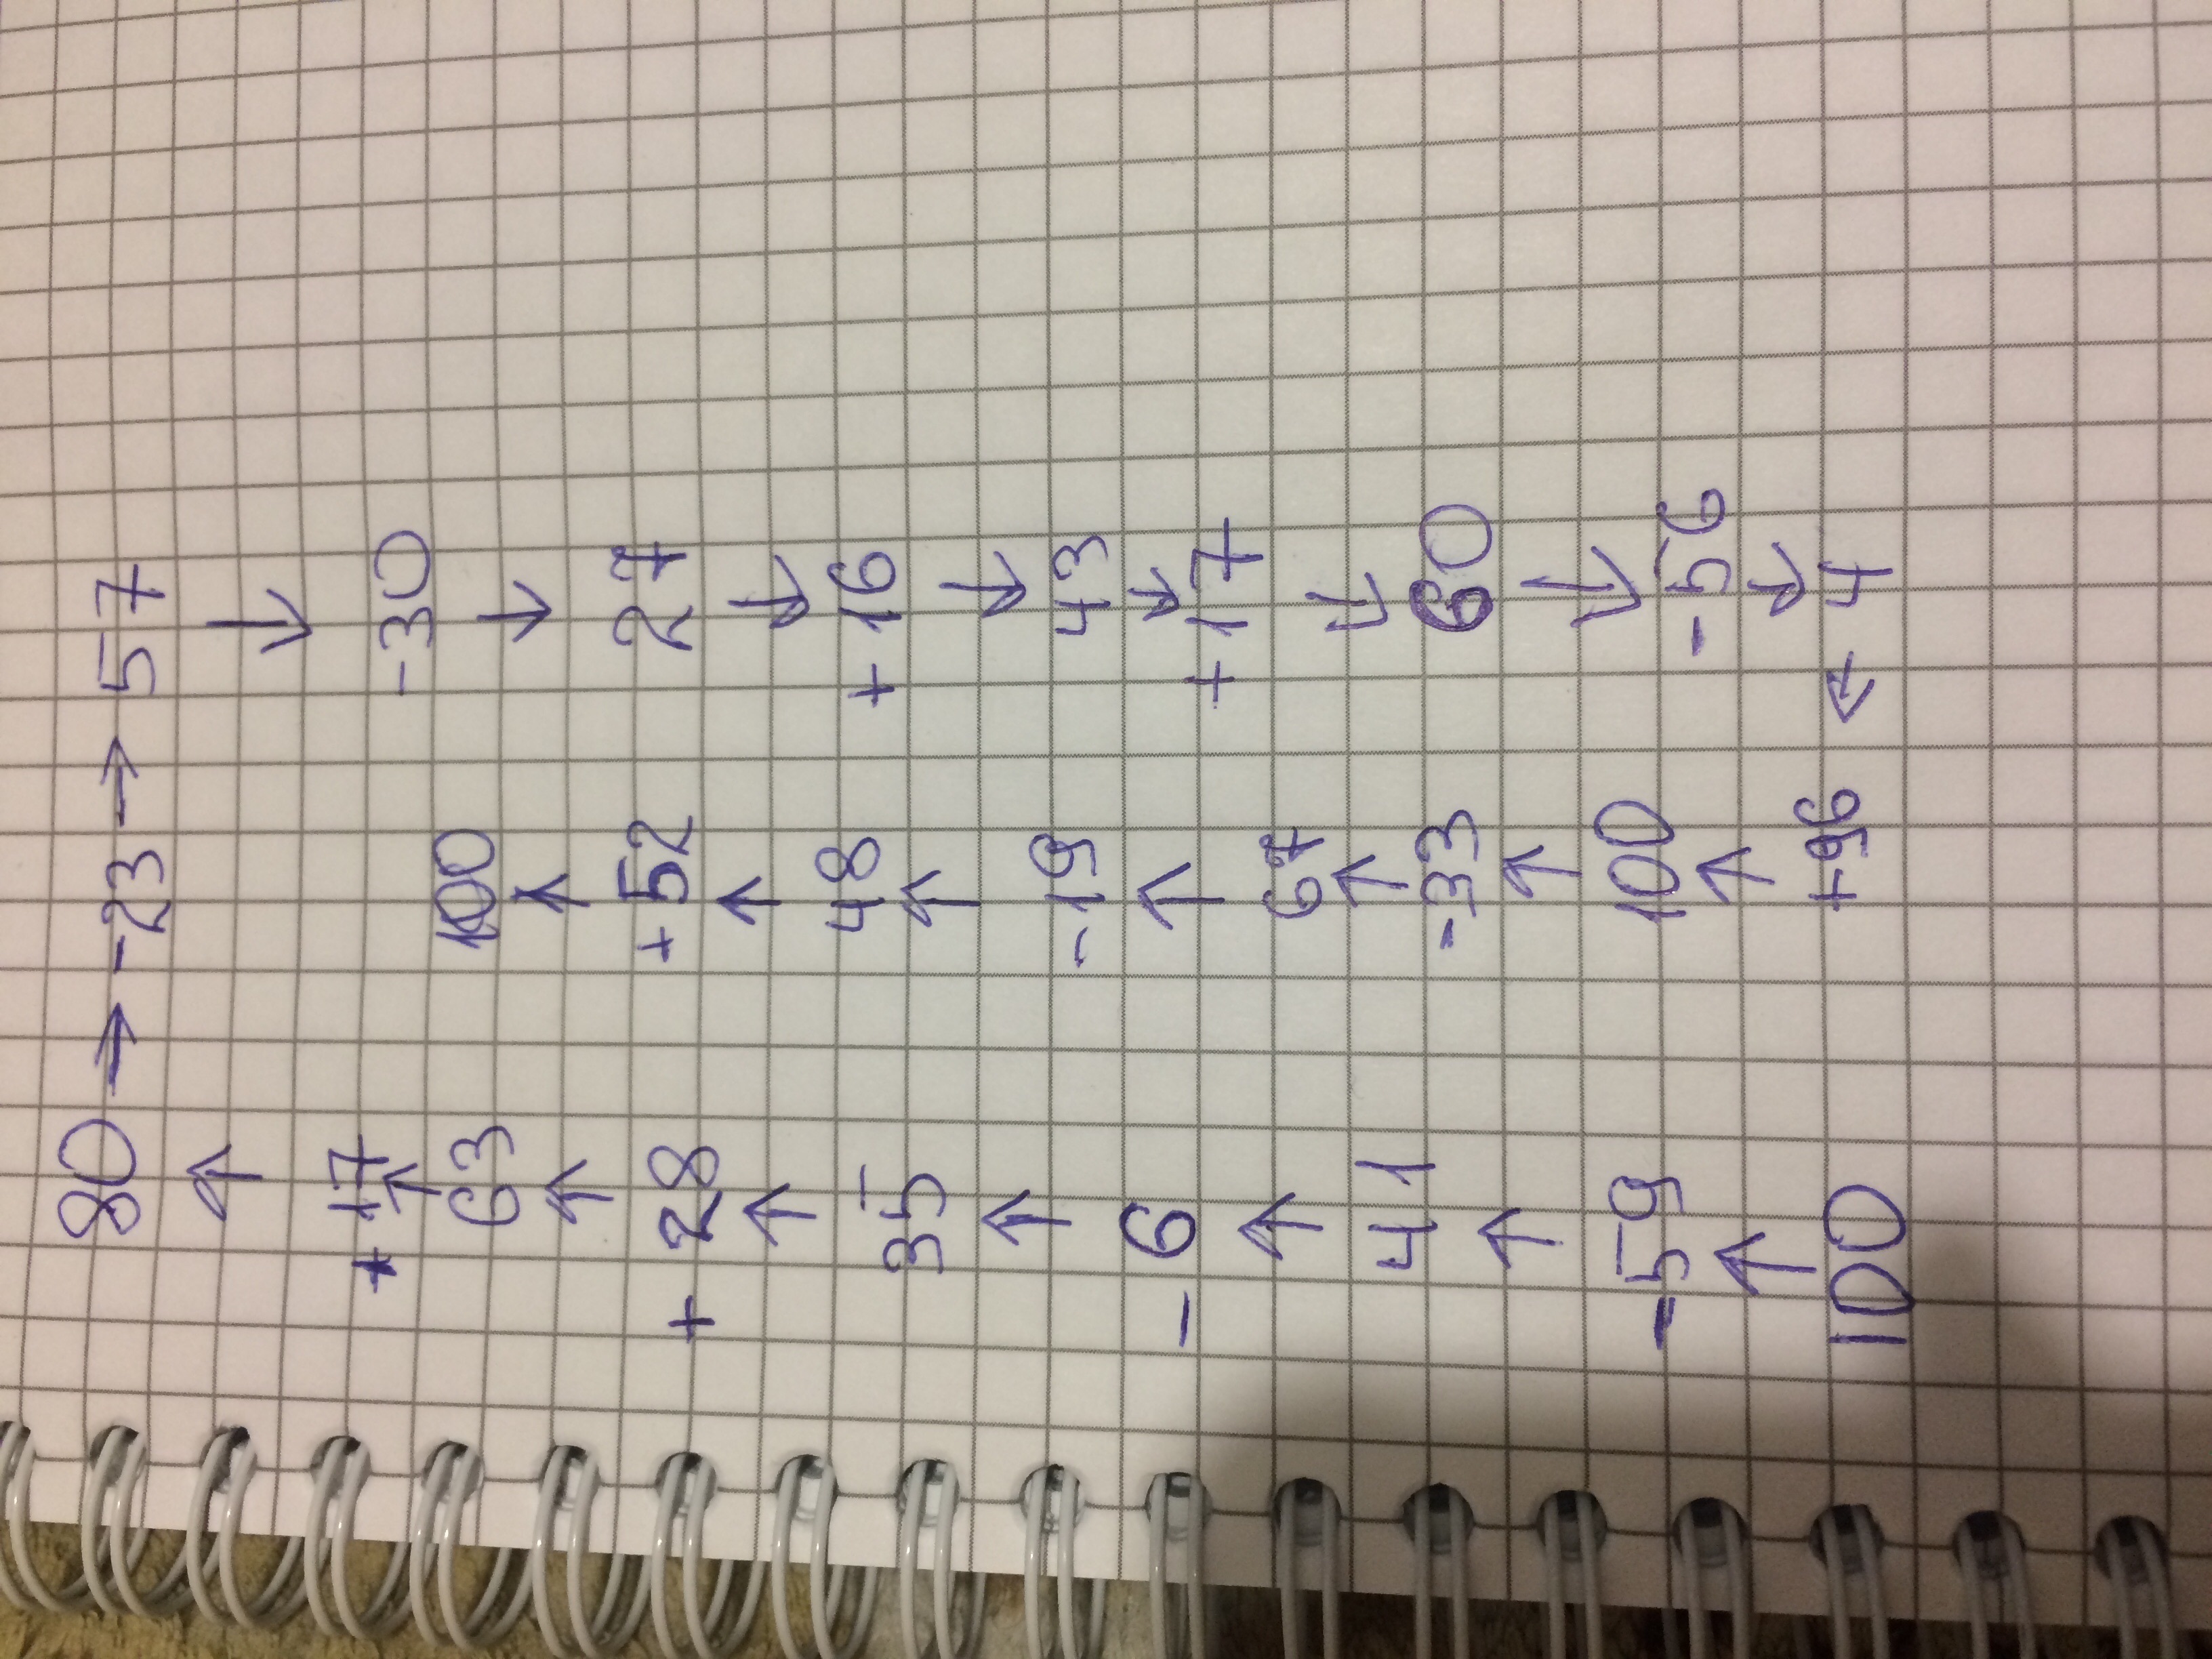 80 → -23 → 57
↑ ↓
+17 -30
↑ ↓
63 100
↑ ↑
+ 28 + 52 27
↑ ↑ ↓
35 48 + 16
↑ ↑ ↓
-19 43
- 6 ↑ ↓
+ 17
↑ 67 ↓
↑
41 -33 60
↑ ↑ ↓
-59 100 -56
↑ ↑ ↓
100 +96 ← 4